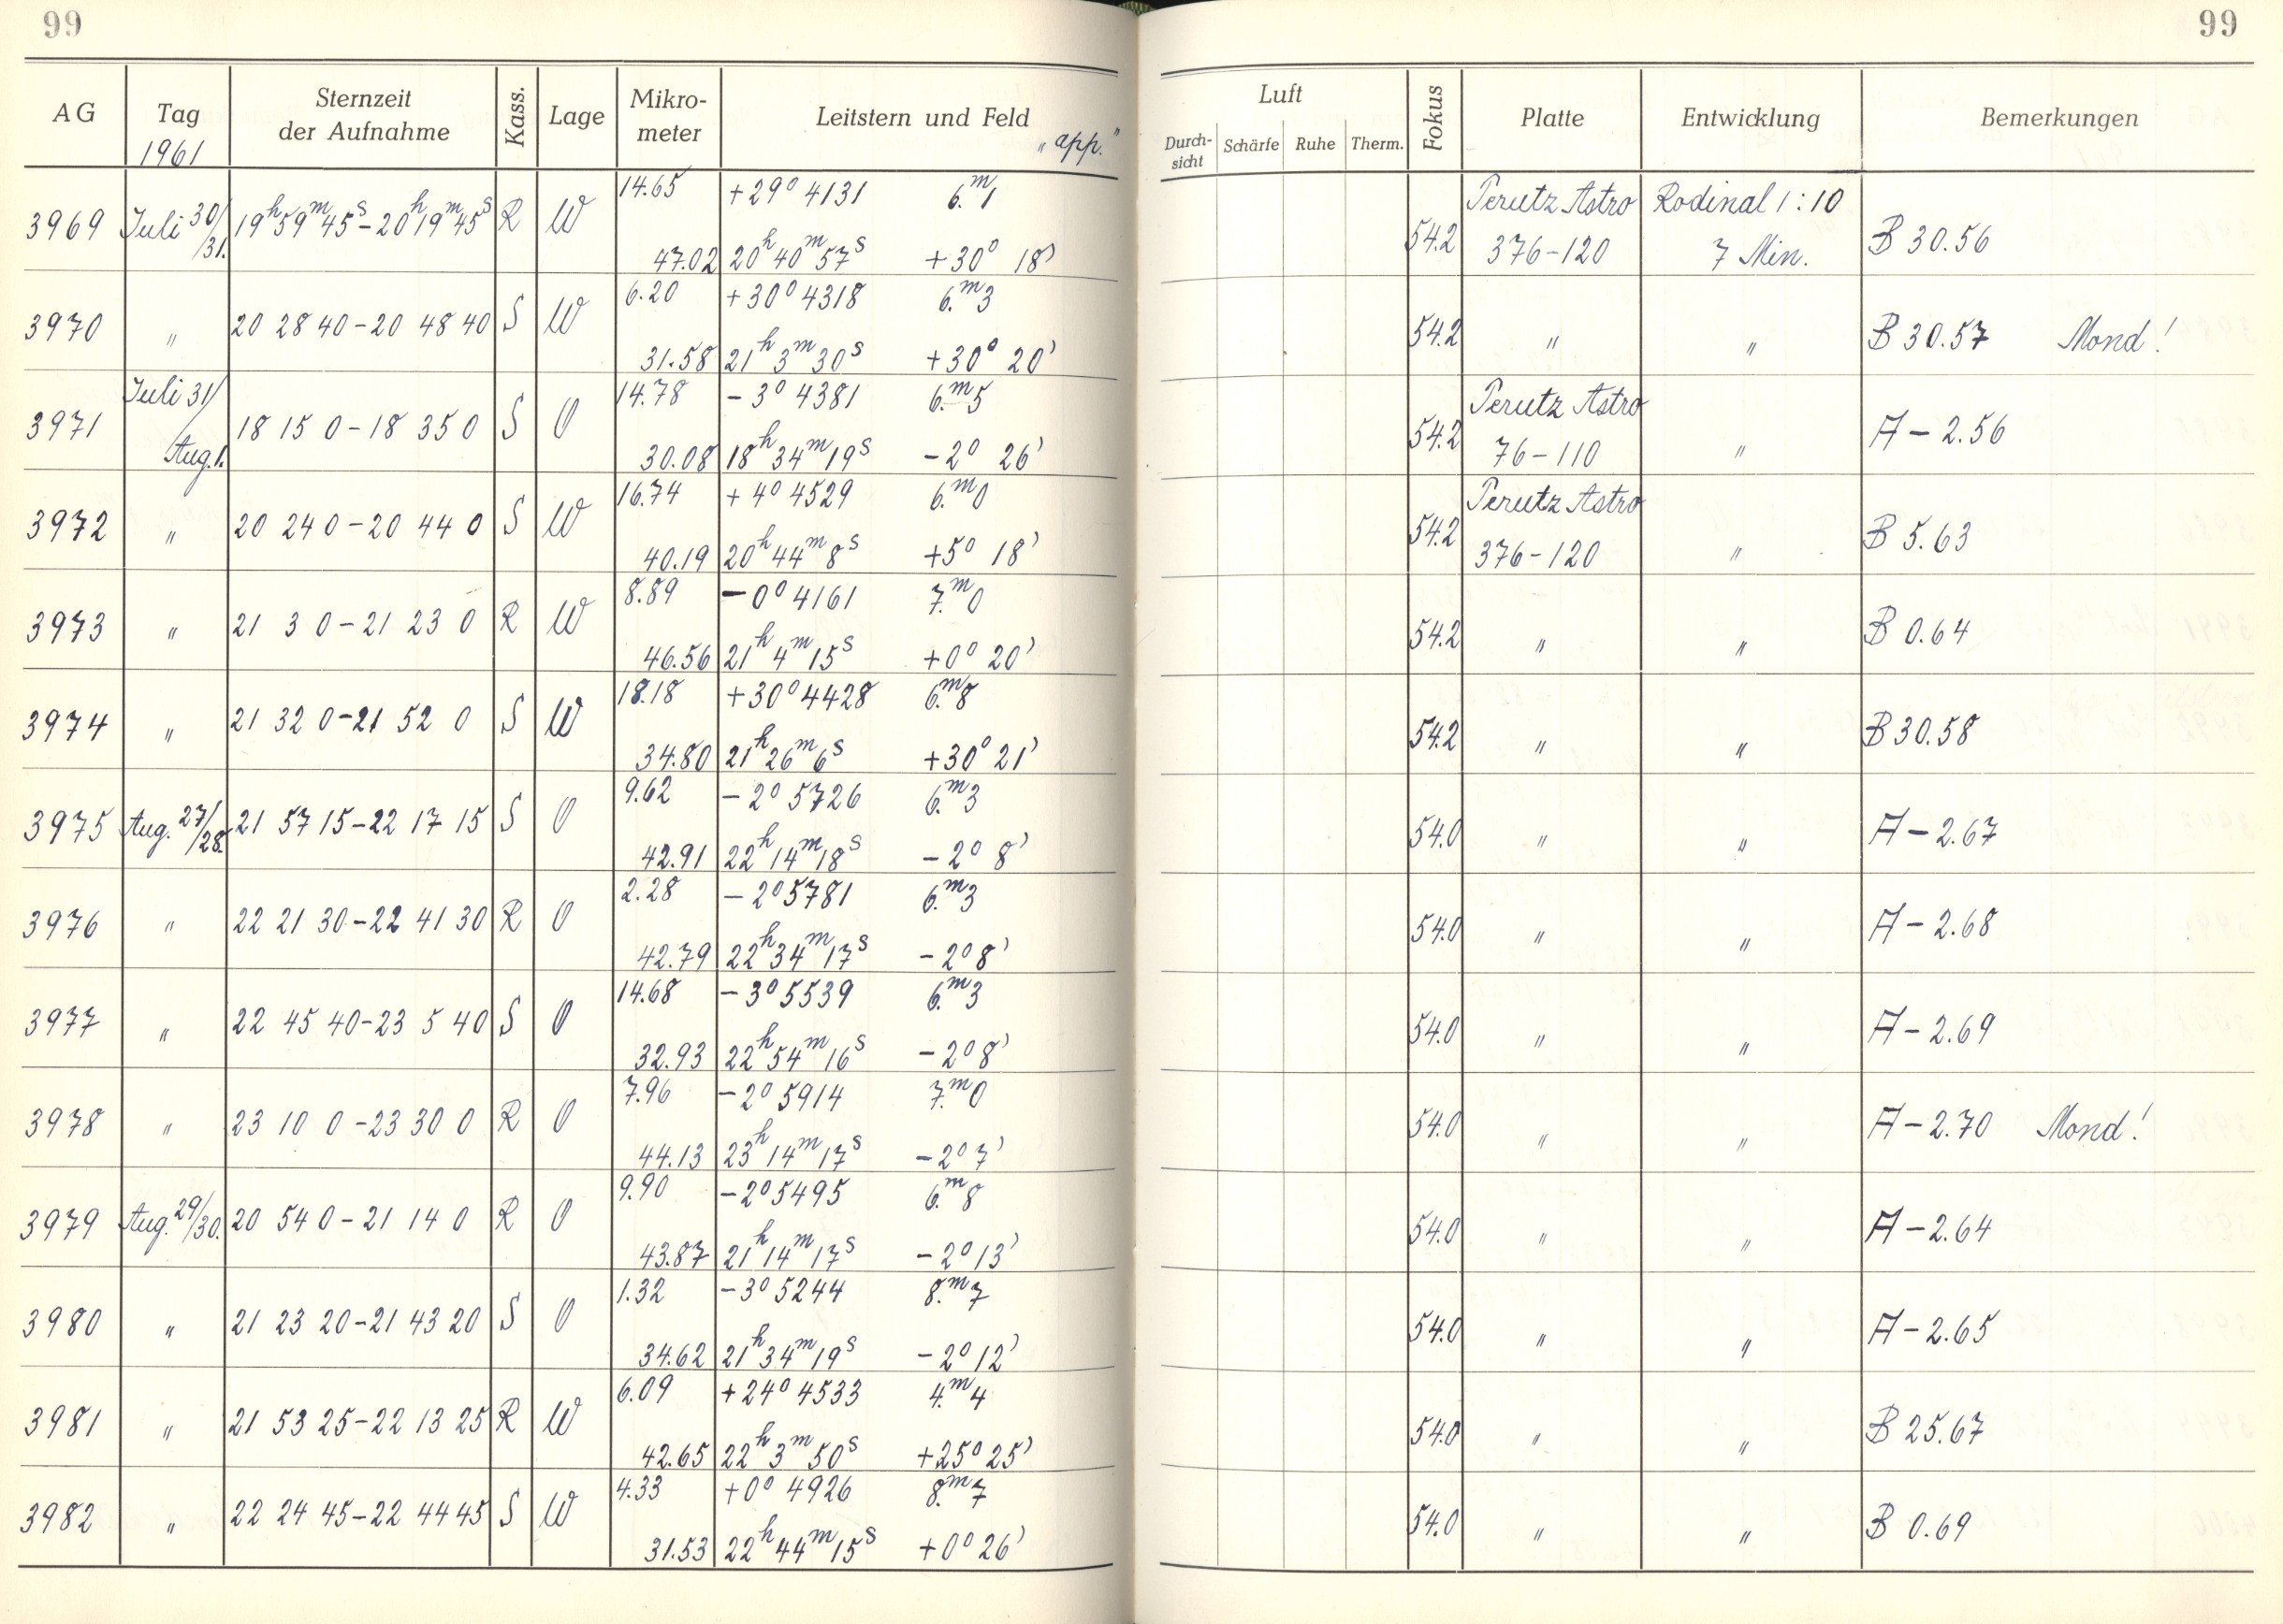 99
99
AG
Tag
1961
Sternzeit
der Aufnahme
Kass.
Lage
Mikro-
meter
Leitstern und Feld
"app."
Luft
Durch-
sicht
Schärfe
Ruhe
Therm.
Fokus
Platte
Entwicklung
Bemerkungen
14.65 +29° 4131 6.m1 Perutz Astro Rodinal 1:10
3969 Juli 30/31. 19h59m45s-20h19m45s R W 54.2 B 30.56
47.02 20h40m57s +30° 18' 376-120 7 Min.
6.20 +30° 4318 6.m3
3970 " 20 28 40-20 48 40 S W 54.2 " " B 30.57 Mond!
31.58 21h3m30s +30° 20'
Juli 31/ 14.78 -3° 4381 6.m5 Perutz Astro
3971 18 15 0-18 35 0 S O 54.2 A-2.56
Aug.1. 30.08 18h34m19s -2° 26' 76-110 "
16.74 +4° 4529 6.m0 Perutz Astro
3972 " 20 24 0-20 44 0 S W 54.2 B 5.63
40.19 20h44m8s +5° 18' 376-120 "
8.89 -0° 4161 7.m0
3973 " 21 3 0-21 23 0 R W 54.2 " " B 0.64
46.56 21h4m15s +0° 20'
18.18 +30° 4428 6.m8
3974 " 21 32 0-21 52 0 S W 54.2 " " B 30.58
34.80 21h26m6s +30° 21'
9.62 -2° 5726 6.m3
3975 Aug. 27/28. 21 57 15-22 17 15 S O 54.0 " " A-2.67
42.91 22h14m18s -2° 8'
2.28 -2° 5781 6.m3
3976 " 22 21 30-22 41 30 R O 54.0 " " A-2.68
42.79 22h34m17s -2° 8'
14.68 -3° 5539 6.m3
3977 " 22 45 40-23 5 40 S O 54.0 " " A-2.69
32.93 22h54m16s -2° 8'
7.96 -2° 5914 7.m0
3978 " 23 10 0-23 30 0 R O 54.0 " " A-2.70 Mond!
44.13 23h14m17s -2° 7'
9.90 -2° 5495 6.m8
3979 Aug. 29/30. 20 54 0-21 14 0 R O 54.0 " " A-2.64
43.87 21h14m17s -2° 13'
1.32 -3° 5244 8.m7
3980 " 21 23 20-21 43 20 S O 54.0 " " A-2.65
34.62 21h34m19s -2° 12'
6.09 +24° 4533 4.m4
3981 " 21 53 25-22 13 25 R W 54.0 " " B 25.67
42.65 22h3m50s +25° 25'
4.33 +0° 4926 8.m7
3982 " 22 24 45-22 44 45 S W 54.0 " " B 0.69
31.53 22h44m15s +0° 26'